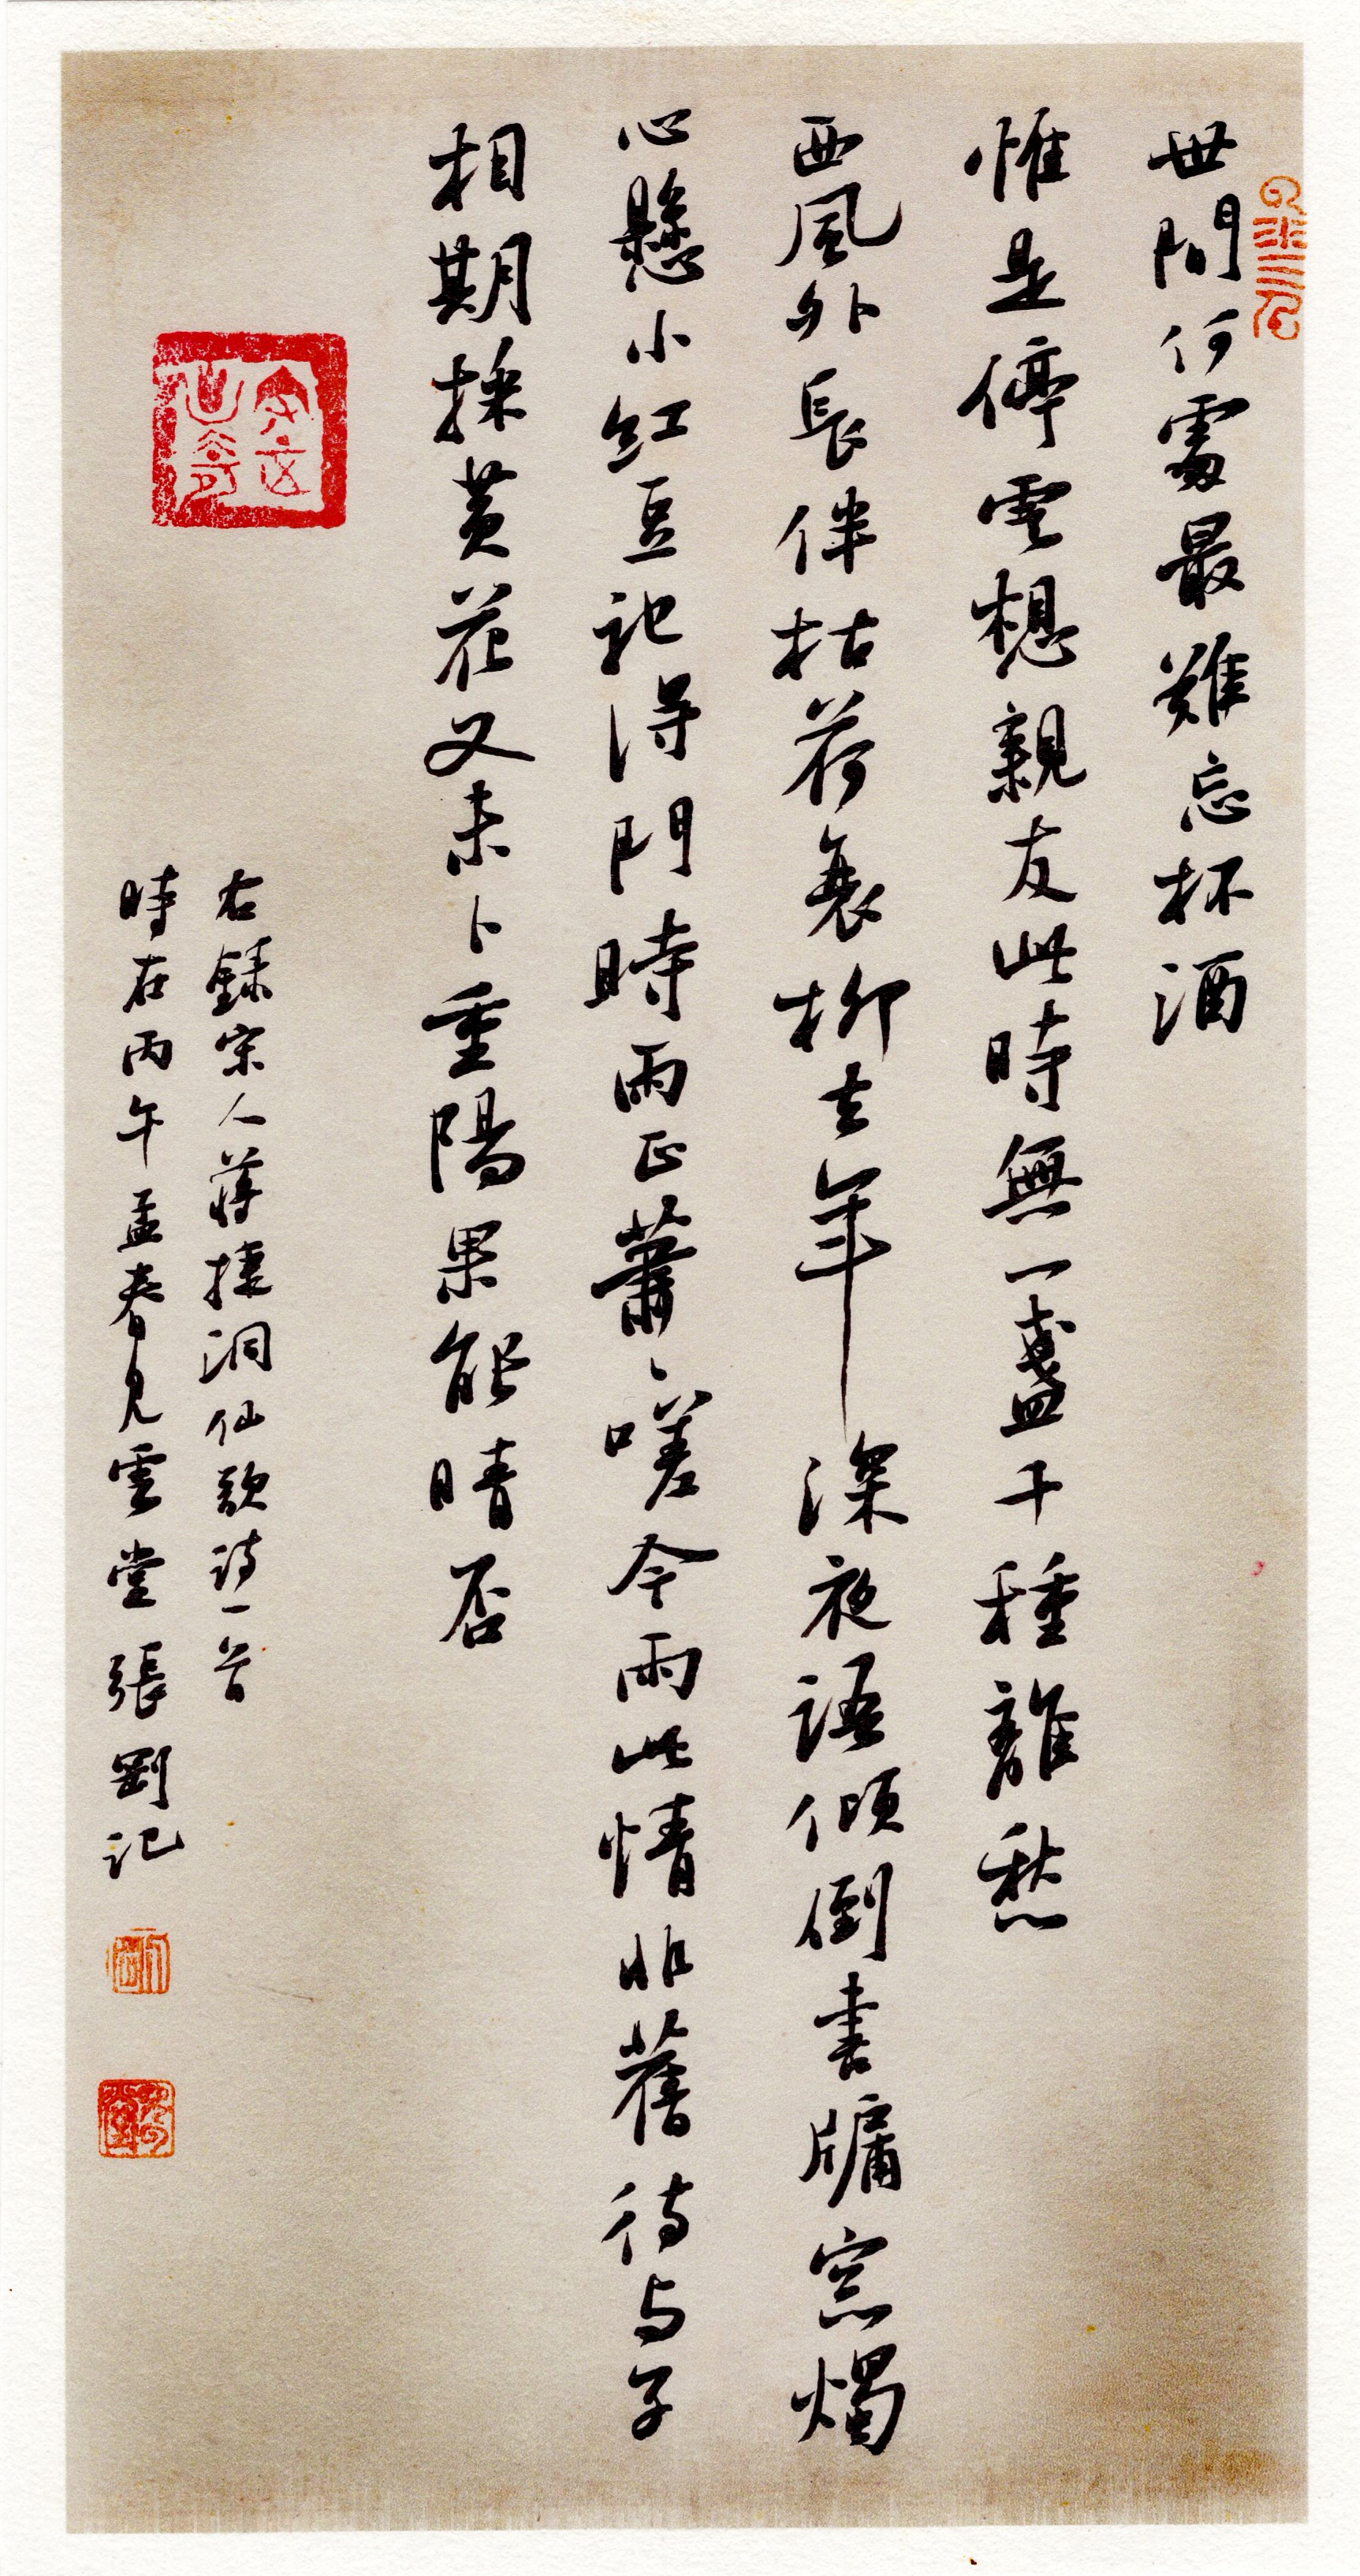 世間何處最難忘杯酒
惟是停雲想親友此時無一盞千種離愁
西風外長伴枯荷衰柳去年深夜語傾倒書牖窓燭
心懸小紅豆記得門時雨正蕭〻嗟今雨此情非舊待与子
相期採黃花又未卜重陽果能晴否
右錄宋人蔣捷洞仙歌詩一首
時在丙午孟春見雲堂張剛記